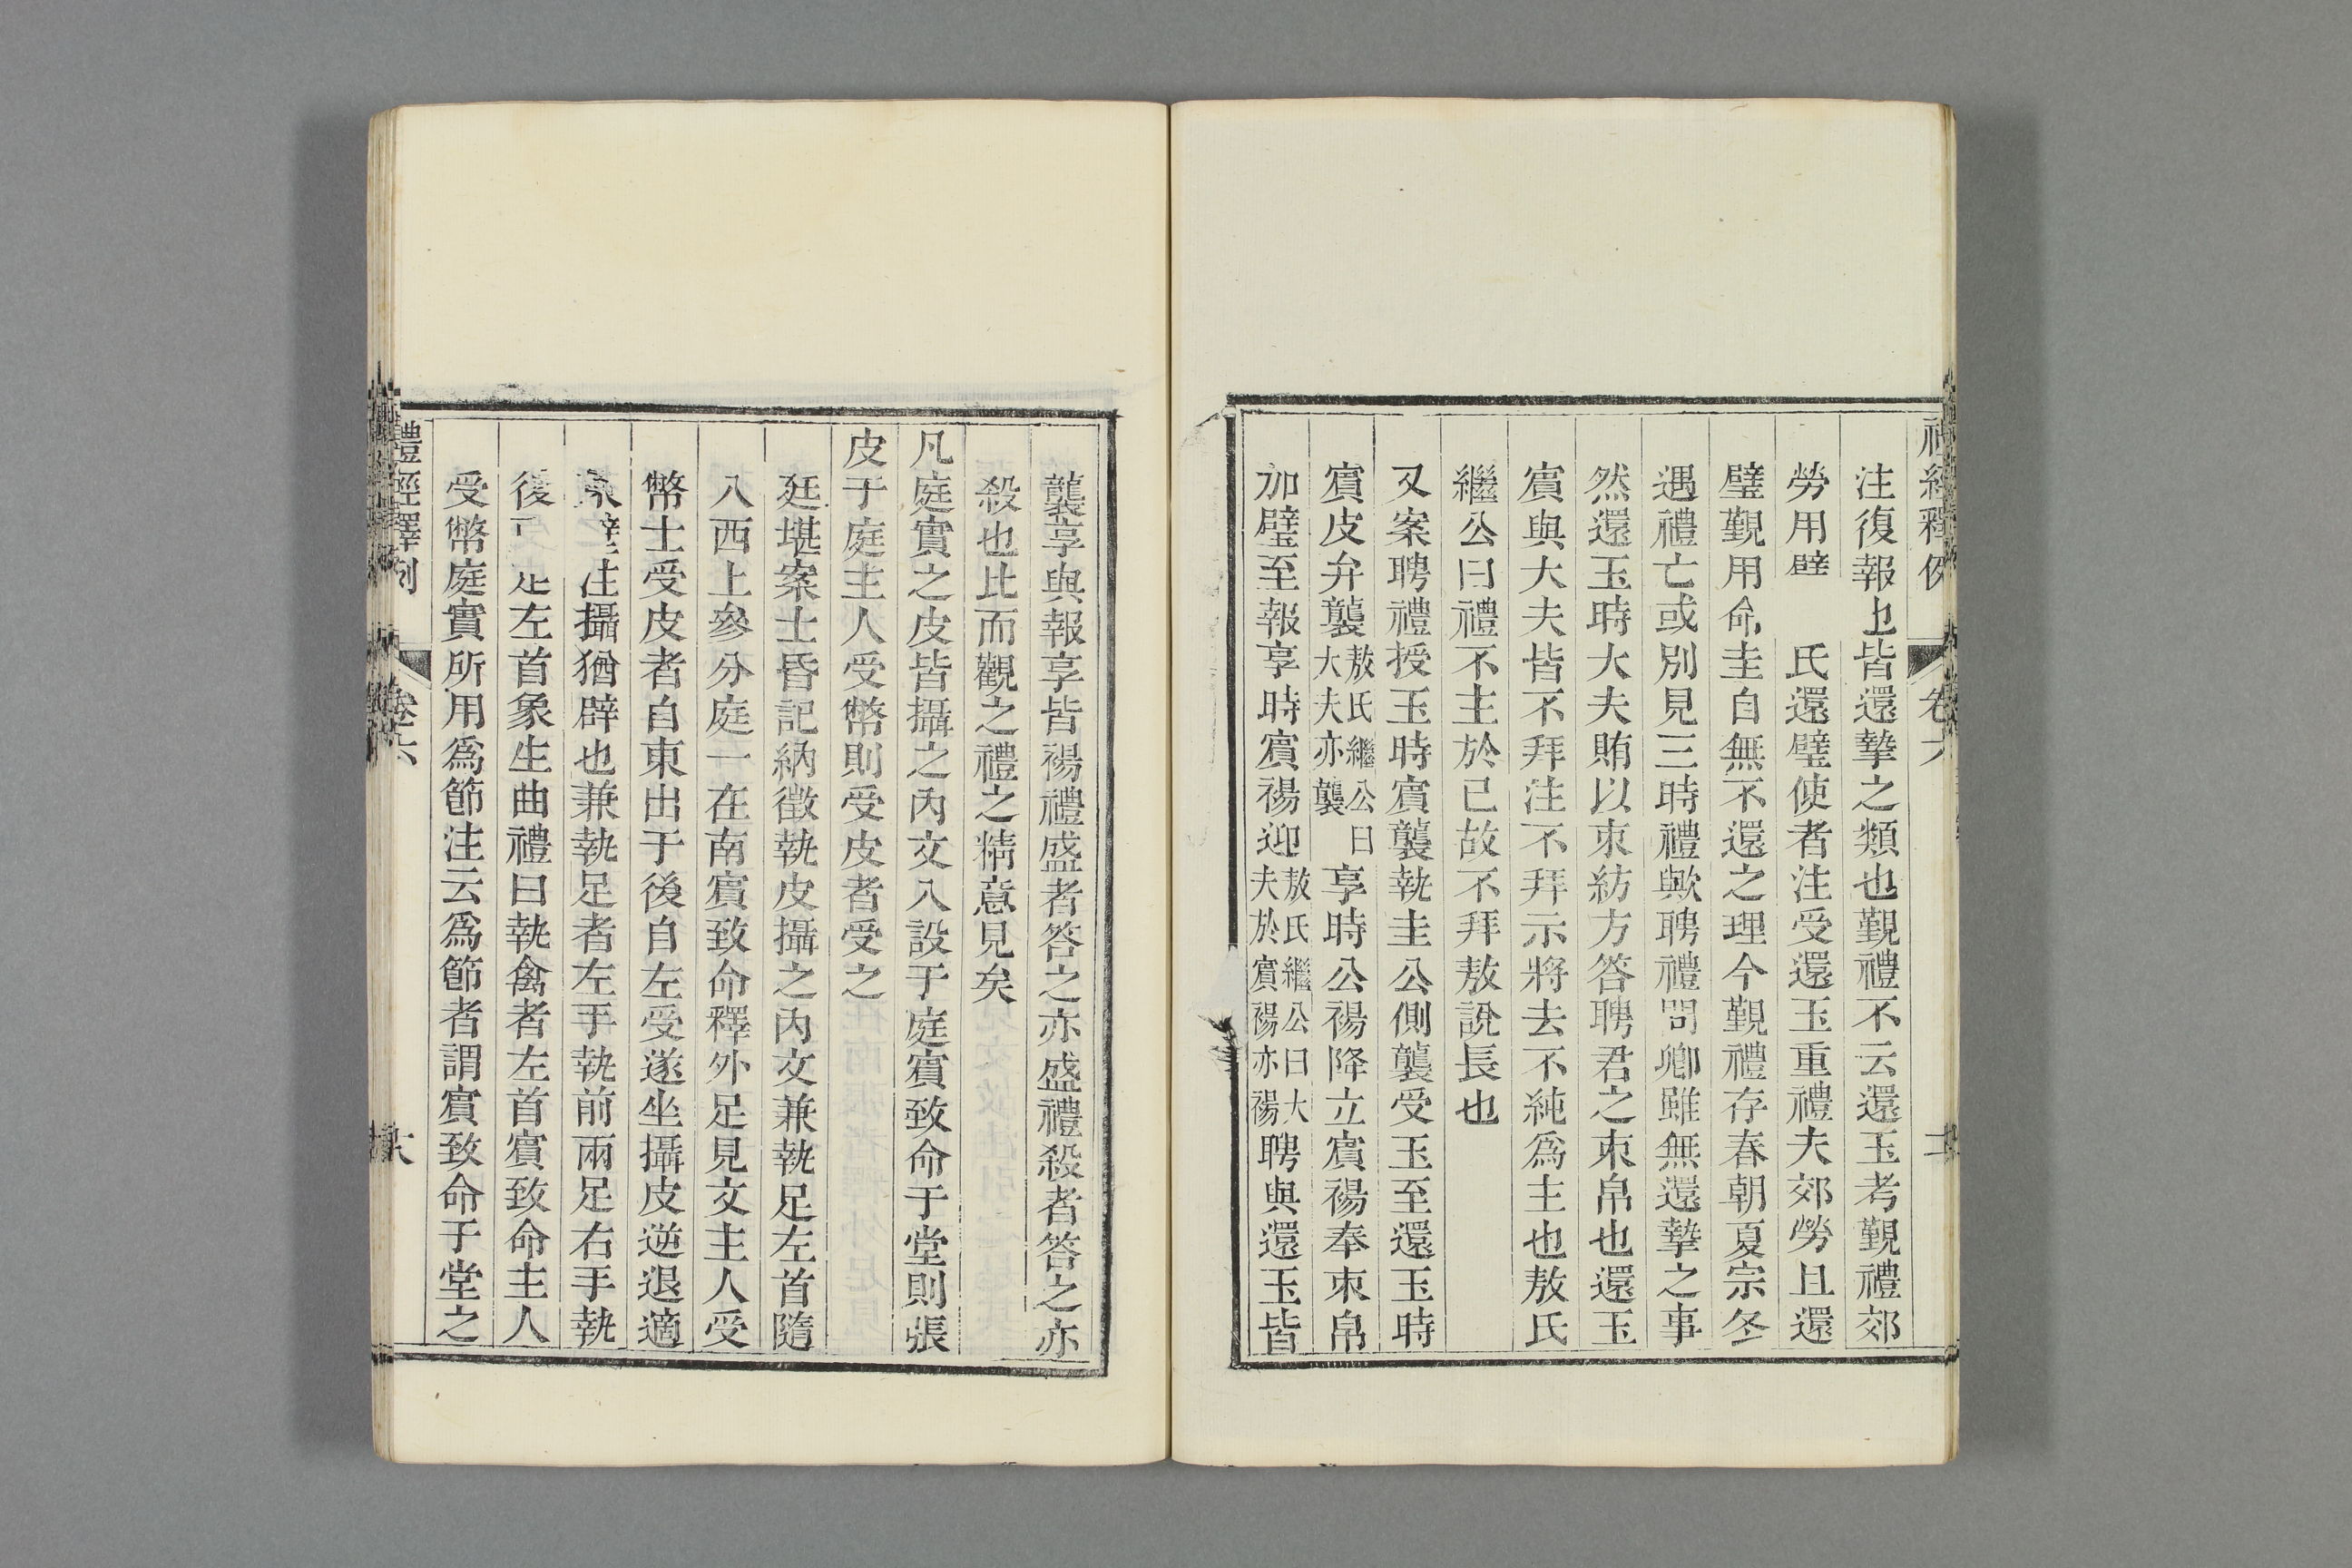 注復報也皆還摯之類也覲禮不云還玉考覲禮郊
勞用璧 氏還璧使者注受還玉重禮夫郊勞且還
璧覲用命圭自無不還之理今覲禮存春朝夏宗冬
遇禮亡或別見三時禮歟聘禮問卿雖無還摯之事
然還玉時大夫賄以束紡方答聘君之束帛也還玉
賓與大夫皆不拜注不拜示將去不純爲主也敖氏
繼公曰禮不主於己故不拜敖說長也
又案聘禮授玉時賓襲執圭公側襲受玉至還玉時
賓皮弁襲敖氏繼公曰大夫亦襲享時公裼降立賓裼奉束帛
加璧至報享時賓裼迎敖氏繼公曰大夫於賓裼亦裼聘與還玉皆
襲享與報享皆裼禮盛者答之亦盛禮殺者答之亦
殺也比而觀之禮之精意見矣
凡庭實之皮皆攝之內文入設于庭賓致命于堂則張
皮于庭主人受幣則受皮者受之
廷堪案士昏記納徵執皮攝之內文兼執足左首隨
入西上參分庭一在南賓致命釋外足見文主人受
幣士受皮者自東出于後自左受遂坐攝皮逆退適
注攝猶辟也兼執足者左手執前兩足右手執
後 足左首象生曲禮曰執禽者左首賓致命主人
受幣庭實所用爲節注云爲節者謂賓致命于堂之
禮經釋例 卷六